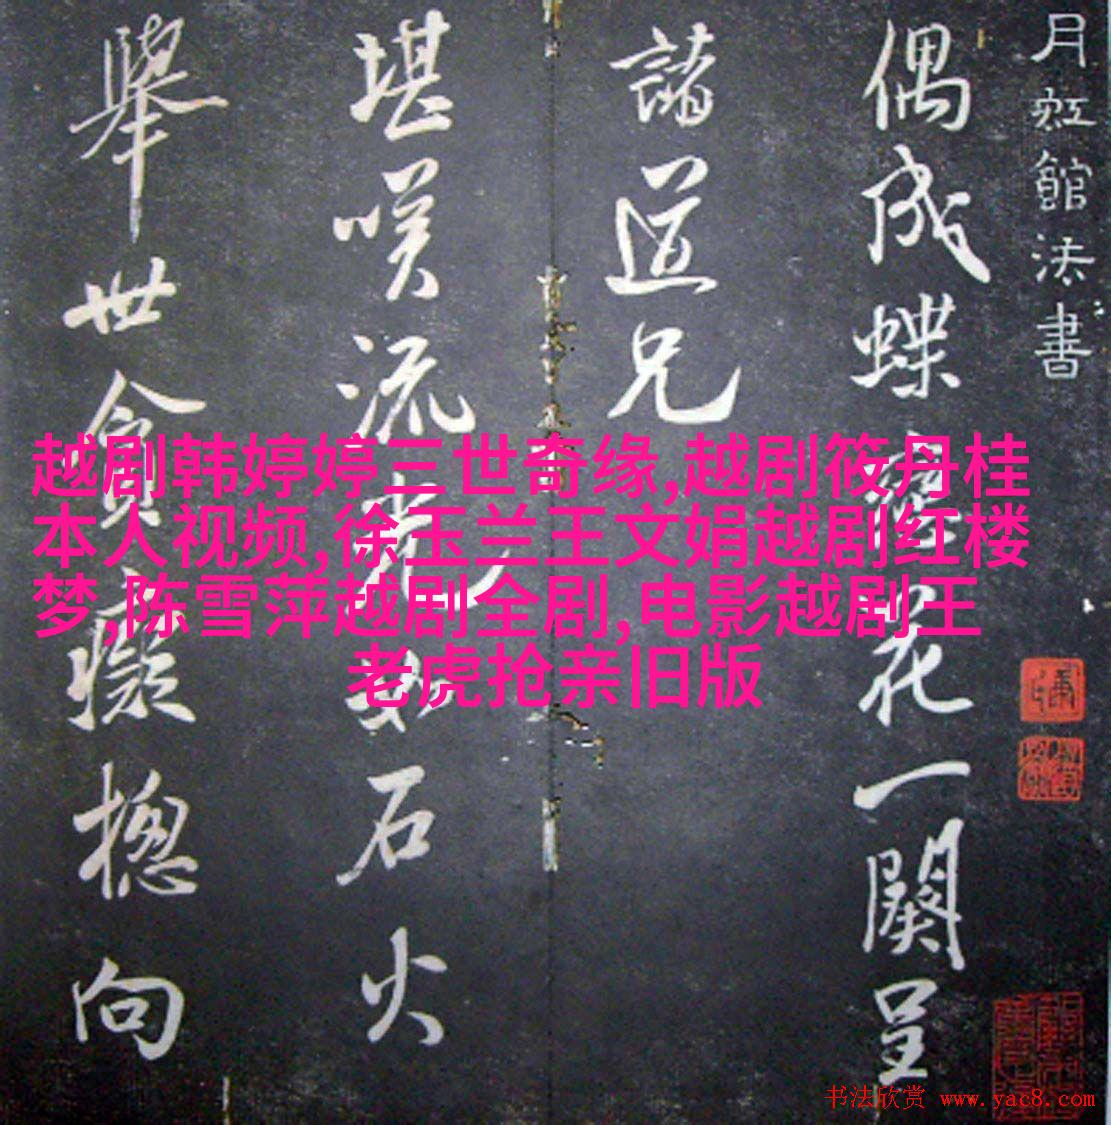 月虹館法書
偶成蝶戀花一闋呈
諸道兄
堪嘆流光如石火
舉世貪癡摠向
越剧韩婷婷三世奇缘,越剧筱丹桂
本人视频,徐玉兰王文娟越剧红楼
梦,陈雪萍越剧全剧,电影越剧王
老虎抢亲旧版
书法欣赏 www.yac8.com